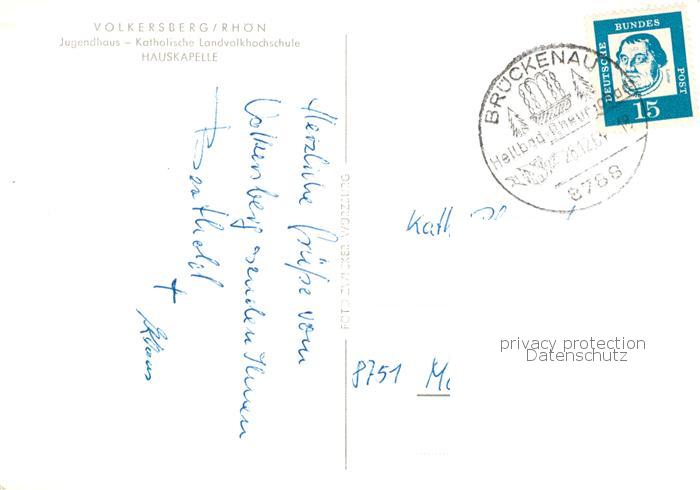 VOLKERSBERG/RHÖN
Jugendhaus – Katholische Landvolkhochschule
HAUSKAPELLE
Herzliche Grüße vom
Volkersberg senden Ihnen
Berthold
+ Klaus
FOTO ZWICKER WÜRZBURG
DEUTSCHE BUNDES POST
15
BRÜCKENAU
Heilbad
8788
Kath
8751
privacy protection
Datenschutz